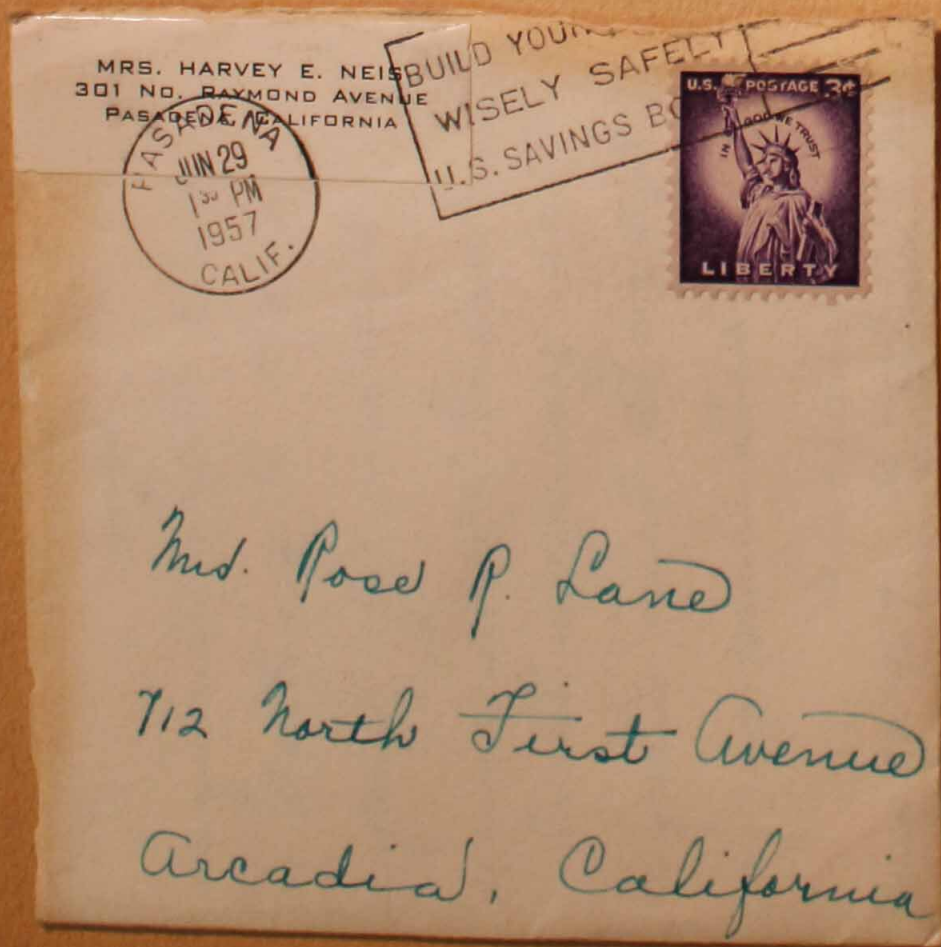 MRS. HARVEY E. NEIS
301 NO. RAYMOND AVENUE
PASADENA, CALIFORNIA
PASADENA
JUN 29
PM
1957
CALIF.
BUILD YOUR
WISELY SAFELY
U.S. SAVINGS BO
U.S. POSTAGE 3¢
IN GOD WE TRUST
LIBERTY
Mrs. Rose R. Lane
712 North First Avenue
Arcadia, California